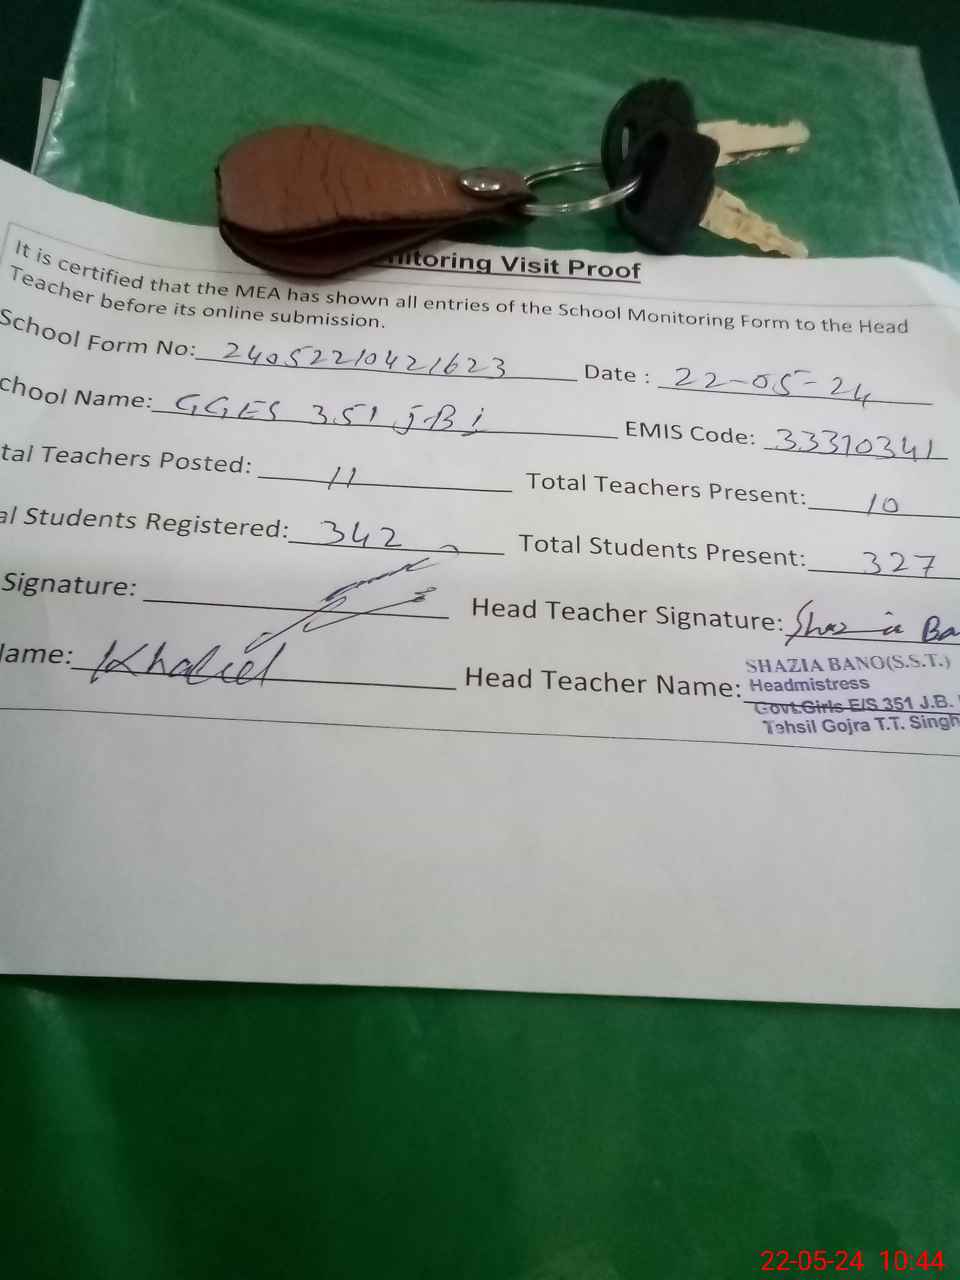 nitoring Visit Proof
It is certified that the MEA has shown all entries of the School Monitoring Form to the Head
Teacher before its online submission.
School Form No: 24052210421623 Date : 22-05-24
chool Name: GGES 351 JB 1 EMIS Code: 33310341
tal Teachers Posted: 11 Total Teachers Present: 10
al Students Registered: 342 Total Students Present: 327
Signature: Head Teacher Signature: Shazia Ba
lame: Khalid Head Teacher Name: SHAZIA BANO(S.S.T.)
Headmistress
Govt.Girls E/S 351 J.B.
Tehsil Gojra T.T. Singh
22-05-24 10:44